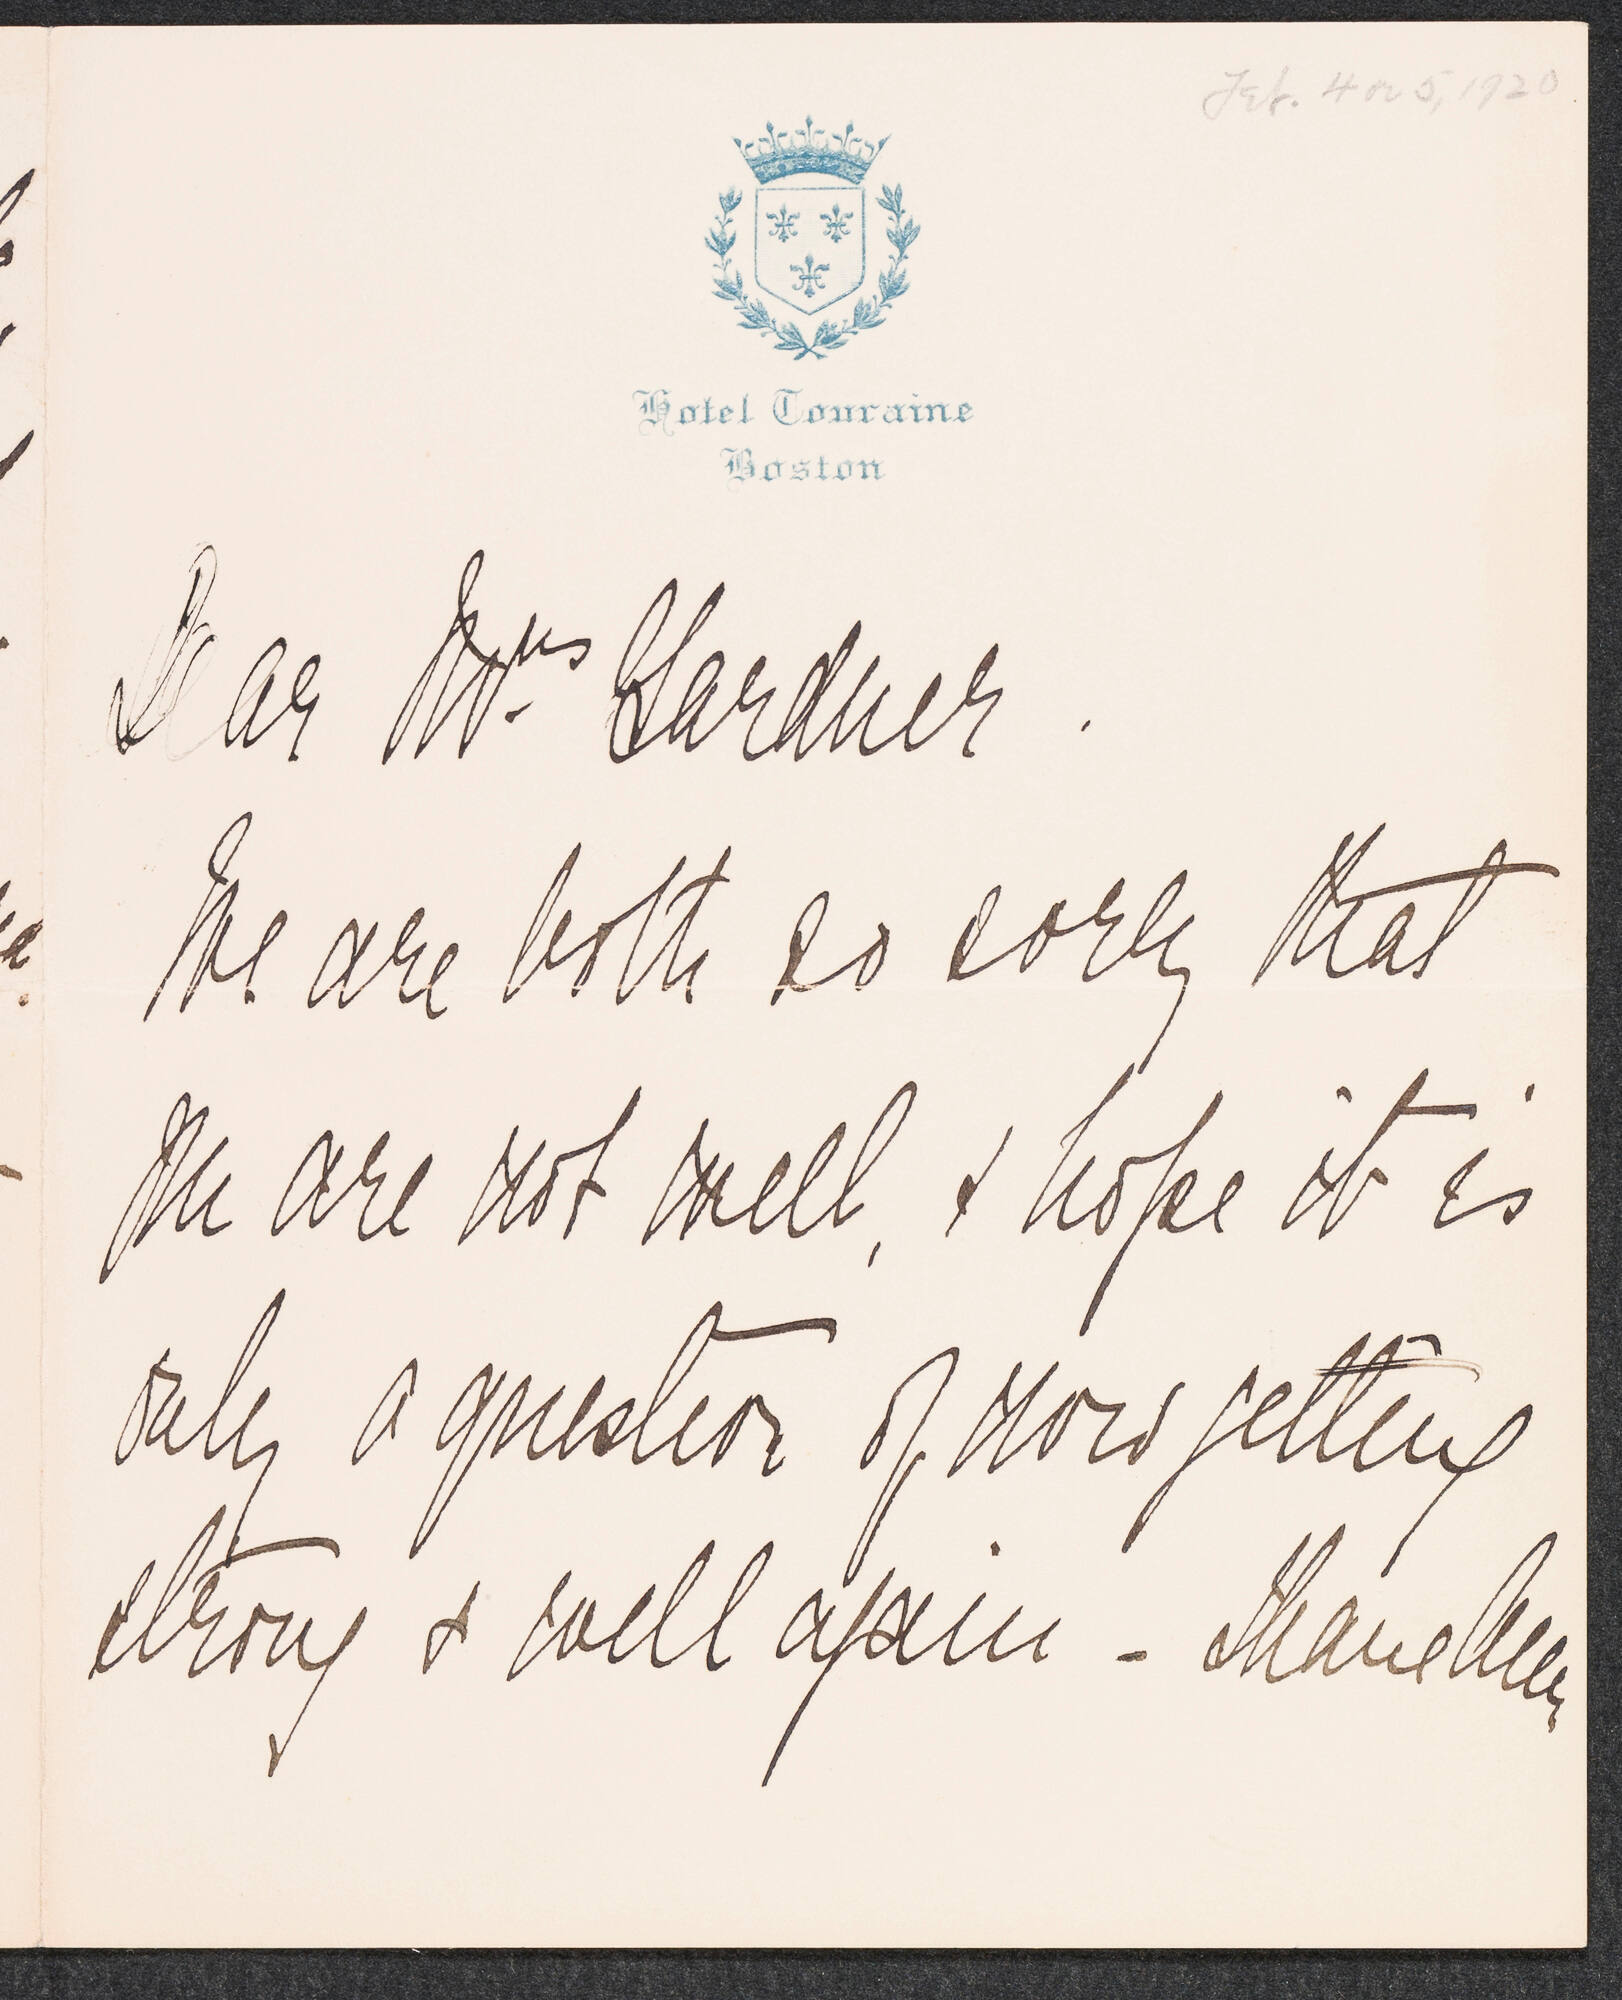 Feb. 4 or 5, 1920
Hotel Touraine
Boston
Dear Mrs. Gardner.
We are both so sorry that
you are not well, & hope it is
only a question of now getting
strong & well again - Thank